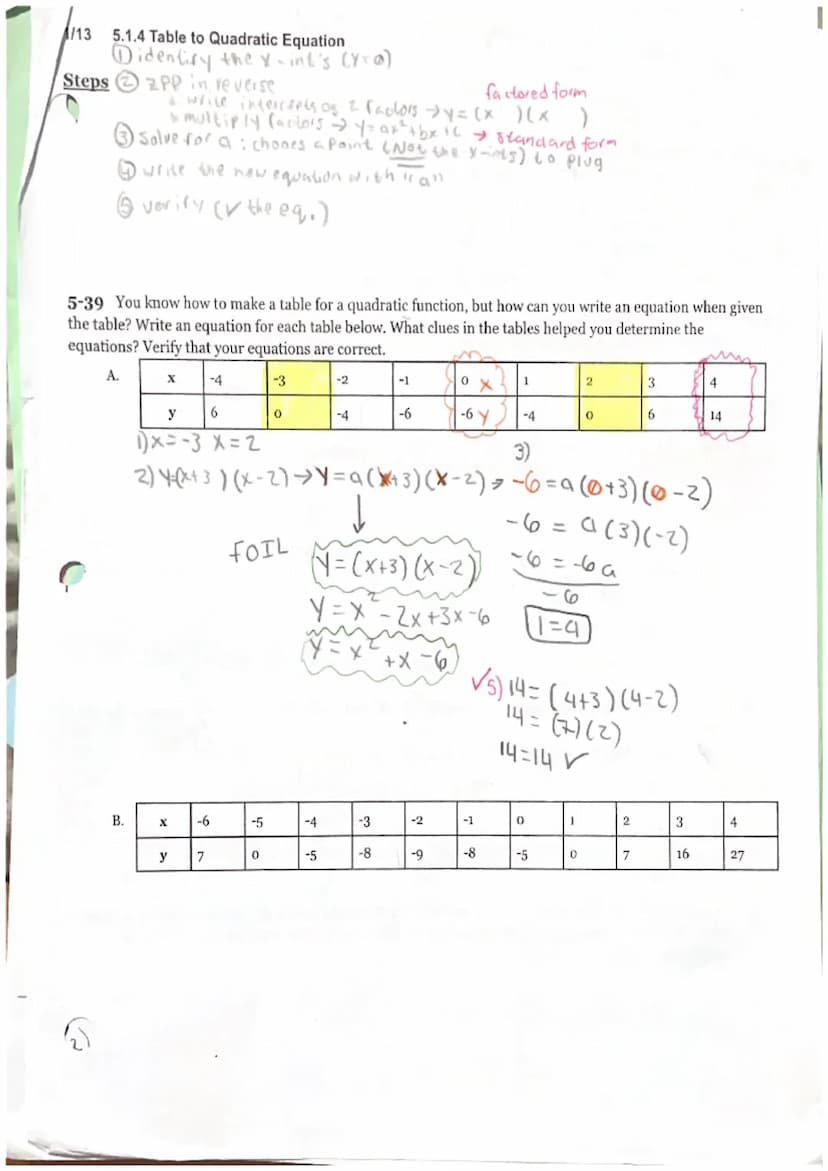 1/13 5.1.4 Table to Quadratic Equation
① identify the x-int's (y=0)
Steps ② ZPP in reverse
factored form
↳ write intercepts as 2 factors → y=(x )(x )
↳ multiply factors → y=ax²+bx+c → standard form
③ Solve for a: chooes a Point (Not the x-ints) to plug
④ write the new equation with "a"
⑤ verify (√ the eq.)
5-39 You know how to make a table for a quadratic function, but how can you write an equation when given
the table? Write an equation for each table below. What clues in the tables helped you determine the
equations? Verify that your equations are correct.
A. x -4 -3 -2 -1 0 x 1 2 3 4
y 6 0 -4 -6 -6 y -4 0 6 14
1) x=-3 x=2
3)
2) y=(x+3)(x-2) → y=a(x+3)(x-2) → -6=a(0+3)(0-2)
↓ -6 = a(3)(-2)
FOIL y=(x+3)(x-2) -6 = -6a
-6
y=x²-2x+3x-6 1=a
y=x²+x-6
√5) 14=(4+3)(4-2)
14=(7)(2)
14=14 ✓
B. x -6 -5 -4 -3 -2 -1 0 1 2 3 4
y 7 0 -5 -8 -9 -8 -5 0 7 16 27
2)